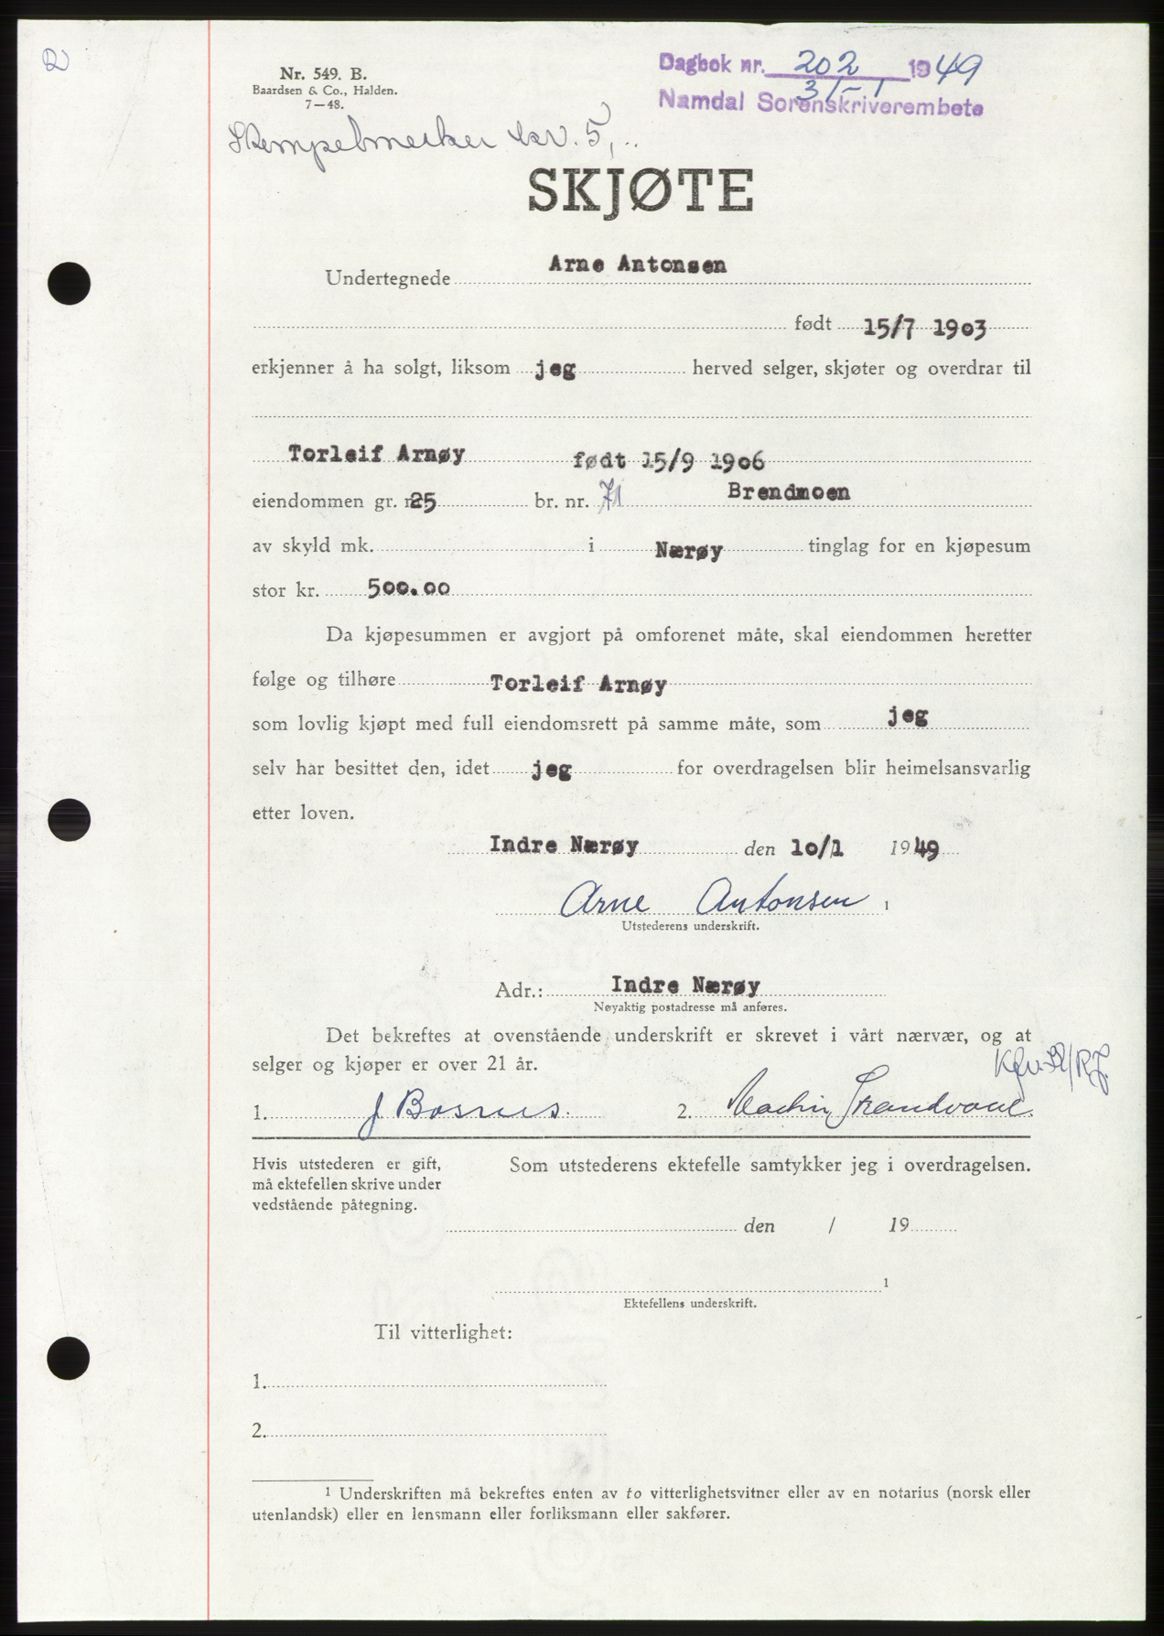 2
Nr. 549. B.
Baardsen & Co., Halden.
7—48.
Dagbok nr. 202 1949
31-1
Namdal Sorenskriverembete
Stempelmerker kr. 5,..
SKJØTE
Undertegnede Arne Antonsen
født 15/7 1903
erkjenner å ha solgt, liksom jeg herved selger, skjøter og overdrar til
Torleif Arnøy født 15/9 1906
eiendommen gr. n25 br. nr. 71 Brendmoen
av skyld mk. i Nærøy tinglag for en kjøpesum
stor kr. 500.00
Da kjøpesummen er avgjort på omforenet måte, skal eiendommen heretter
følge og tilhøre Torleif Arnøy
som lovlig kjøpt med full eiendomsrett på samme måte, som jeg
selv har besittet den, idet jeg for overdragelsen blir heimelsansvarlig
etter loven.
Indre Nærøy den 10/1 1949
Arne Antonsen 1
Utstederens underskrift.
Adr.: Indre Nærøy
Nøyaktig postadresse må anføres.
Det bekreftes at ovenstående underskrift er skrevet i vårt nærvær, og at
selger og kjøper er over 21 år.
1. J Bosnes. 2. Martin Strandvaag.
Hvis utstederen er gift,
må ektefellen skrive under
vedstående påtegning.
Som utstederens ektefelle samtykker jeg i overdragelsen.
den / 19
1
Ektefellens underskrift.
Til vitterlighet:
1.
2.
1 Underskriften må bekreftes enten av to vitterlighetsvitner eller av en notarius (norsk eller
utenlandsk) eller en lensmann eller forliksmann eller sakfører.